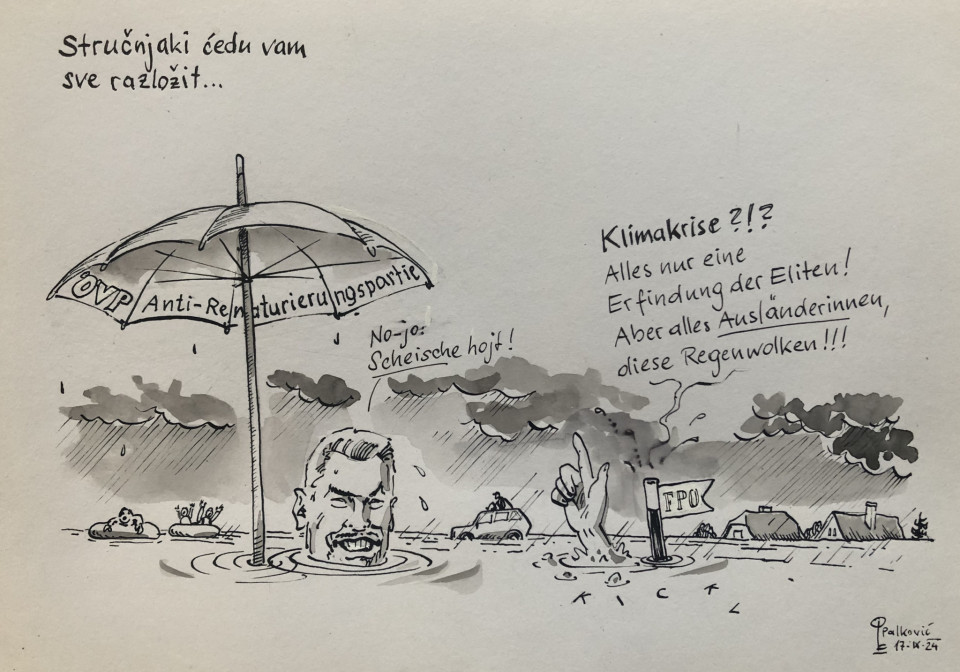 Stručnjaki ćedu vam
sve razložit...
ÖVP Anti-Renaturierungspartie
No-jo:
Scheische hojt!
Klimakrise?!?
Alles nur eine
Erfindung der Eliten!
Aber alles Ausländerinnen,
diese Regenwolken!!!
FPÖ
KICKL
Ppalković
17-IX-24